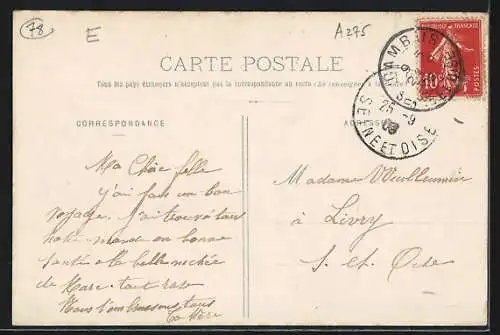 78
E
A275
CARTE POSTALE
Tous les pays étrangers n'acceptent pas la correspondance au recto (se renseigner à la
CORRESPONDANCE
ADRESSE
REPUBLIQUE FRANÇAISE
10c
POSTES
GAMBAIS
25 -9
SEINE ET OISE
Ma Chère fille
j'ai fait un bon
voyage. J'ai trouvé tout
notre monde en bonne
santé
de tout
Nous t'embrassons tous
ta Mère
Madame
à Livry
S. et Oise